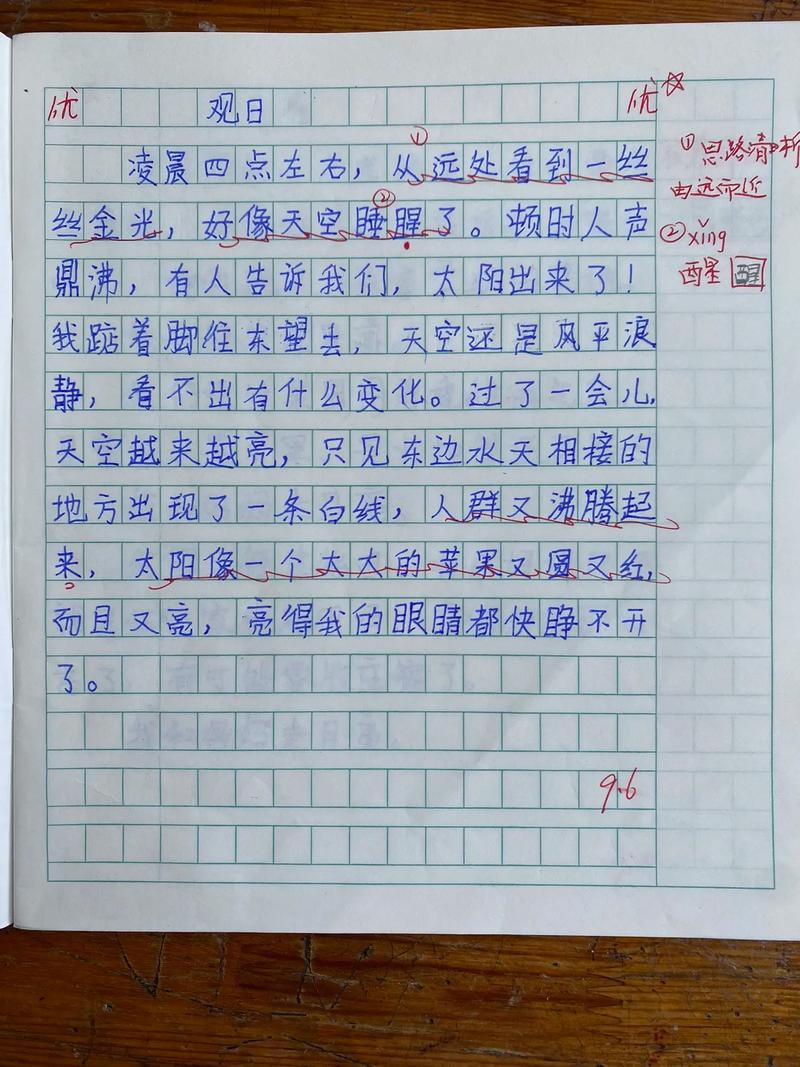 优 观日 优
凌晨四点左右，从远处看到一丝
①
丝金光，好像天空睡腥了。顿时人声
②
鼎沸，有人告诉我们，太阳出来了！
我踮着脚往东望去，天空还是风平浪
静，看不出有什么变化。过了一会儿，
天空越来越亮，只见东边水天相接的
地方出现了一条白线，人群又沸腾起
来，太阳像一个大大的苹果又圆又红，
而且又亮，亮得我的眼睛都快睁不开
了。
9.6
①思路清晰
由远而近
②xǐng
醒 醒